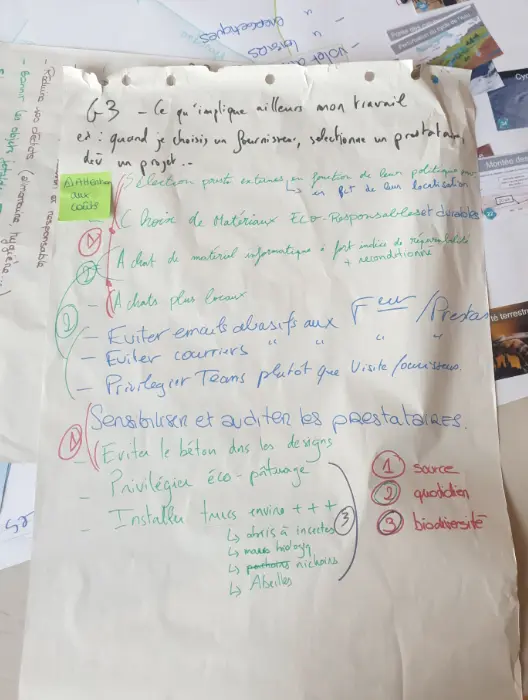 G3 - Ce qu'implique ailleurs mon travail
ex : quand je choisis un fournisseur, selectionne un prestataire,
dév un projet..
⚠ Attention
aux
coûts
Sélection presta externes, en fonction de leur politique env
↳ en fct de leur localisation
Choix de Matériaux Eco-Responsables et durables
Achat de matériel informatique à fort indice de réparabilité
+ reconditionné
- Achats plus locaux
- Eviter emails abusifs aux Feur / Presta
- Eviter courriers " " " "
- Privilegier Teams plutôt que Visite fournisseurs.
Sensibiliser et auditer les prestataires.
- Eviter le béton dns les designs
- Privilégier éco-pâturage
- Installer trucs enviro +++
↳ abris à insectes
↳ mares biolog
↳ nichoirs
↳ Abeilles
1
1
2
2
3
① source
② quotidien
③ biodiversité
- Réduire nos déchets (alimentaire, hygiène
responsable
énergétiques
Cyc
Montée des
té terrestr